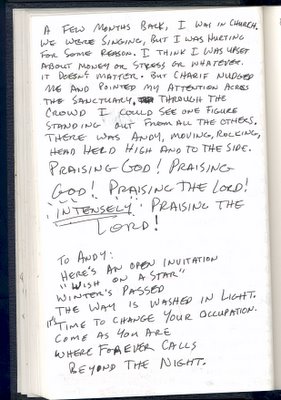 A FEW MONTHS BACK, I WAS IN CHURCH.
WE WERE SINGING, BUT I WAS HURTING
FOR SOME REASON. I THINK I WAS UPSET
ABOUT MONEY OR STRESS OR WHATEVER.
IT DOESN'T MATTER. BUT CHARIF NUDGED
ME AND POINTED MY ATTENTION ACROSS
THE SANCTUARY. THROUGH THE
CROWD I COULD SEE ONE FIGURE
STANDING OUT FROM ALL THE OTHERS.
THERE WAS ANDY, MOVING, ROCKING,
HEAD HELD HIGH AND TO THE SIDE.
PRAISING GOD! PRAISING
GOD! PRAISING THE LORD!
INTENSELY PRAISING THE
LORD!
TO ANDY:
HERE'S AN OPEN INVITATION
"WISH ON A STAR"
WINTER'S PASSED
THE WAY IS WASHED IN LIGHT.
IT'S TIME TO CHANGE YOUR OCCUPATION.
COME AS YOU ARE
WHERE FOREVER CALLS
BEYOND THE NIGHT.